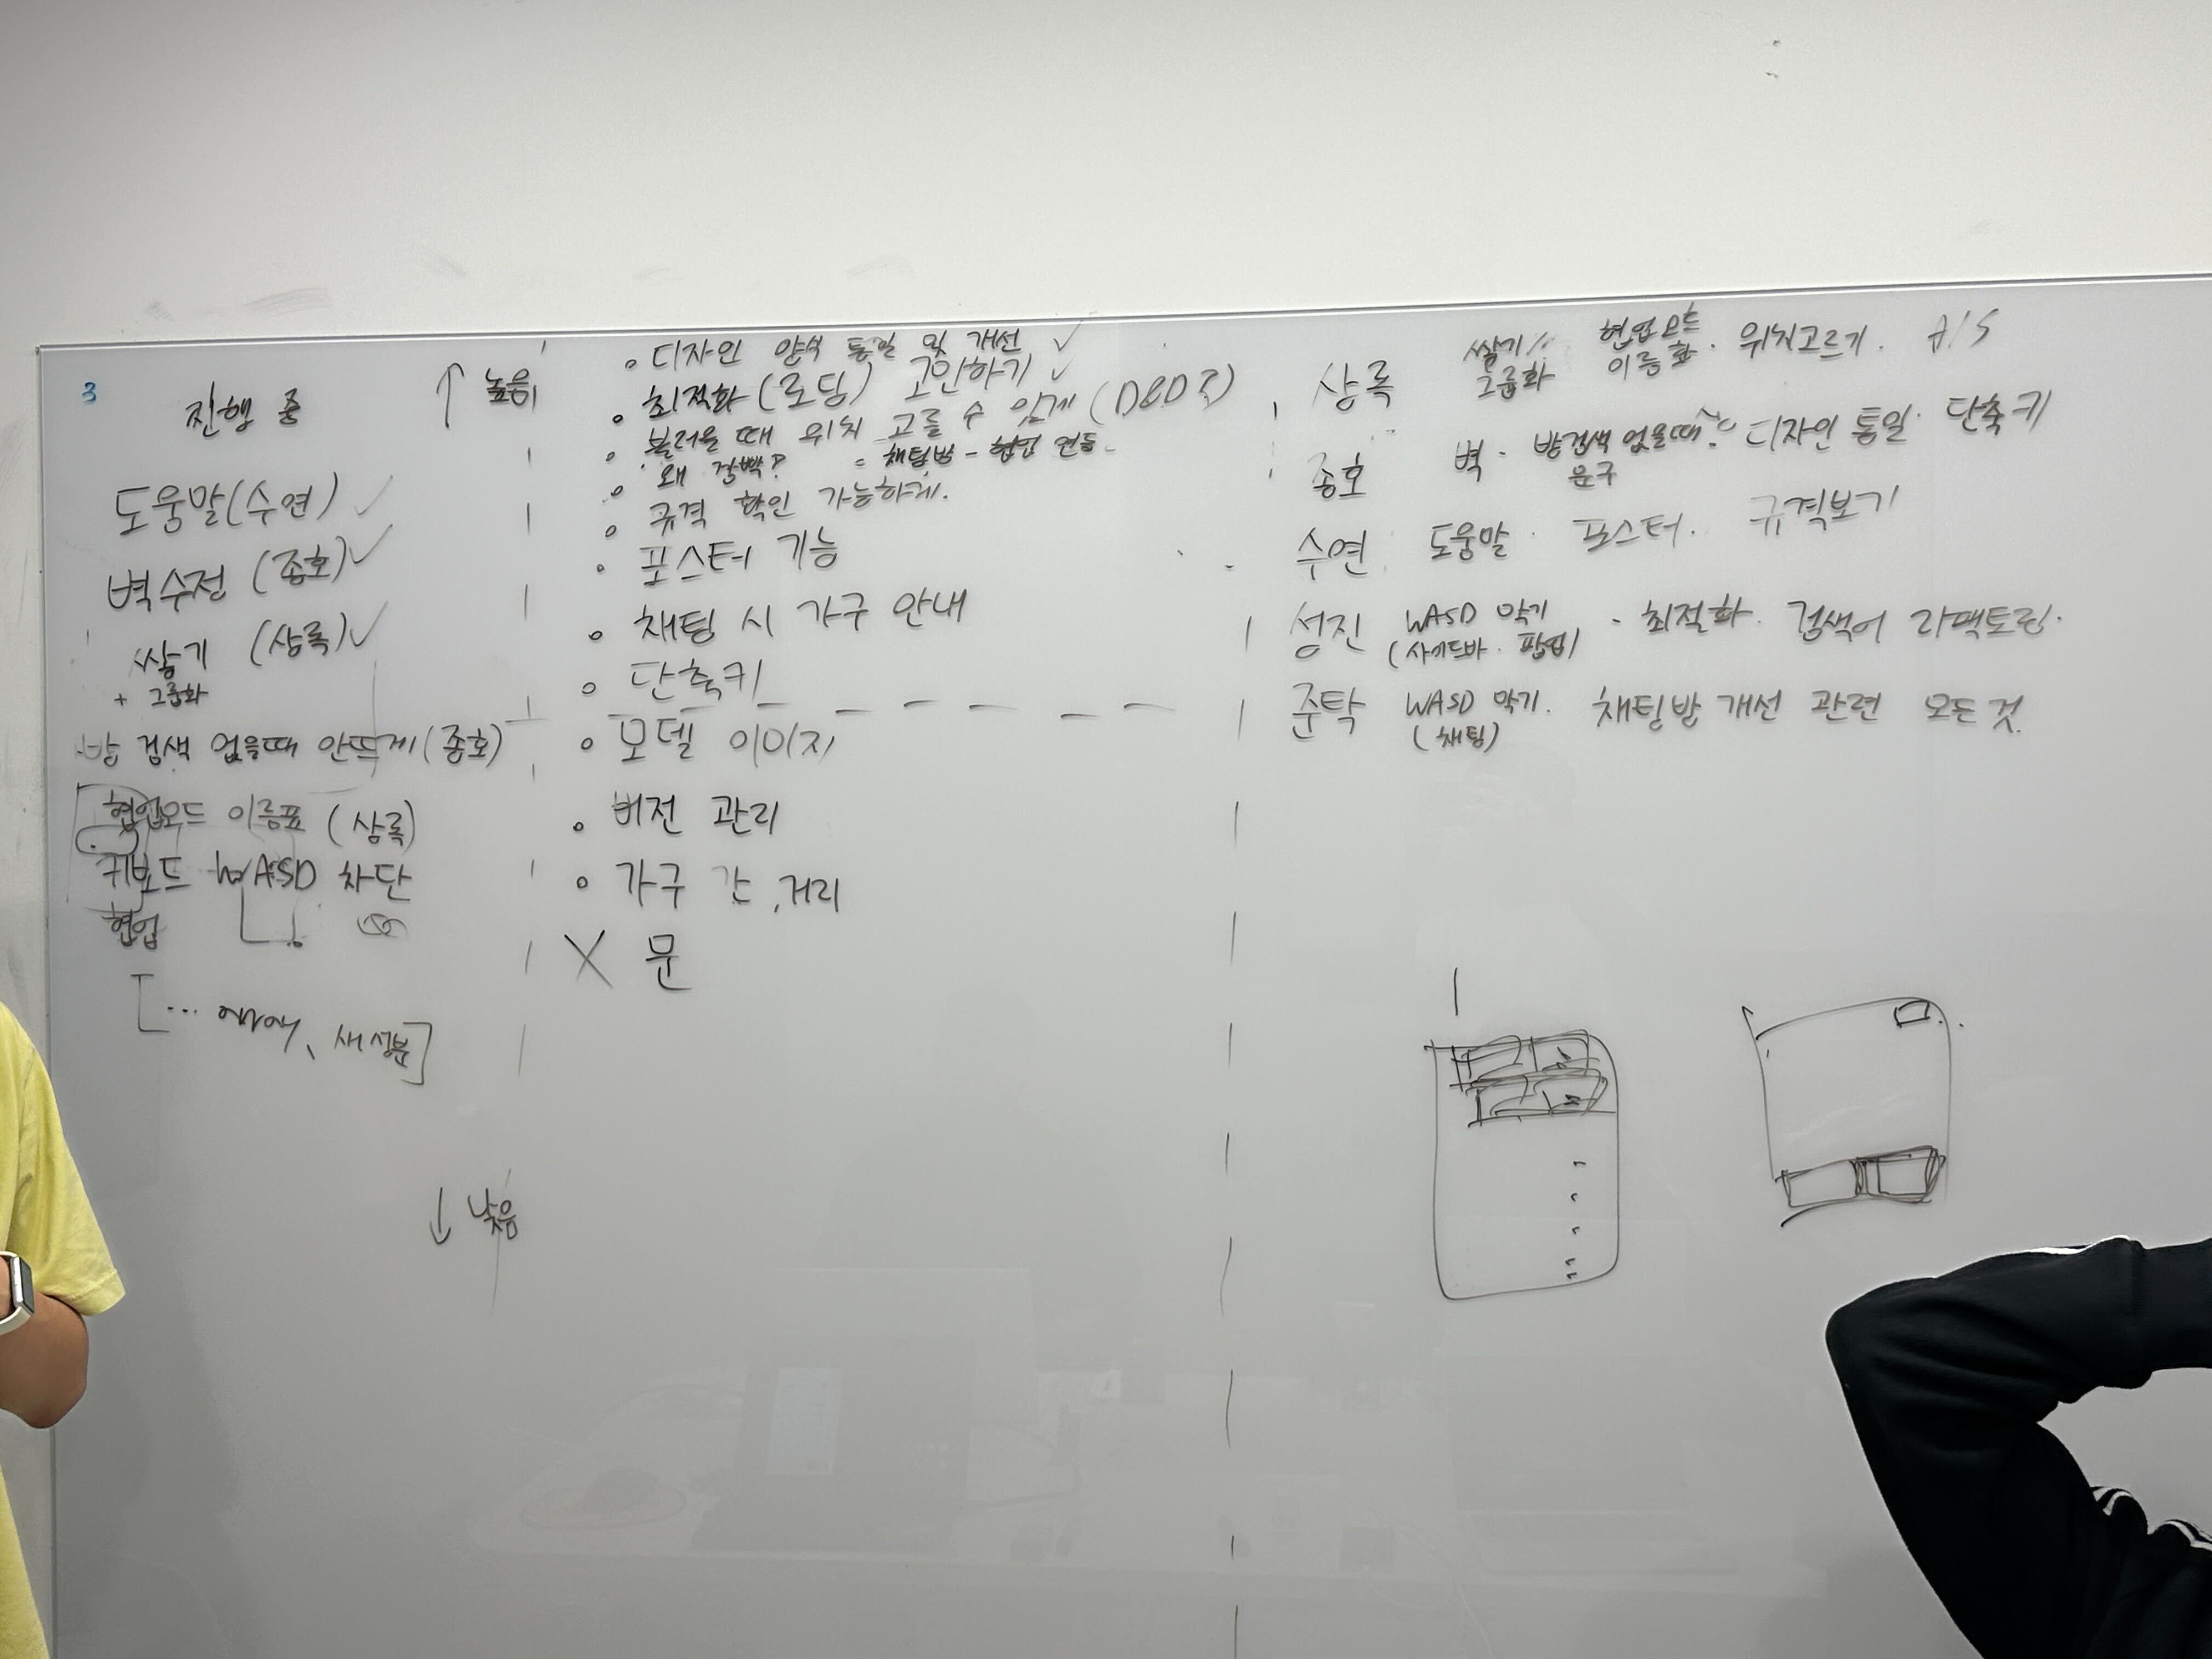 3
진행 중
도움말(수연) ✓
벽수정 (종호) ✓
쌓기 (상록) ✓
+ 그룹화
방 검색 없을때 안뜨게 (종호)
협업모드 이름표 (상록)
키보드 WASD 차단
협업
↑ 높음
↓ 낮음
◦ 디자인 양식 통일 및 개선 ✓
◦ 최적화 (로딩) 고민하기 ✓
◦ 불러올 때 위치 고를 수 있게
◦ 왜 깜빡? ◦ 채팅방 - 협업 연동
◦ 규격 확인 가능하게.
◦ 포스터 기능
◦ 채팅 시 가구 안내
◦ 단축키
◦ 모델 이미지
◦ 버전 관리
◦ 가구 간 거리
X 문
상록 쌓기 그룹화 협업모드 이름표 · 위치고르기 · A/S
종호 벽 · 방검색 없을때 문구 디자인 통일 · 단축키
수연 도움말 · 포스터 · 규격보기
성진 WASD 막기 · 최적화 · 검색어 리팩토링.
(사이드바 · 팝업)
준탁 WASD 막기. 채팅방 개선 관련 모든 것.
(채팅)